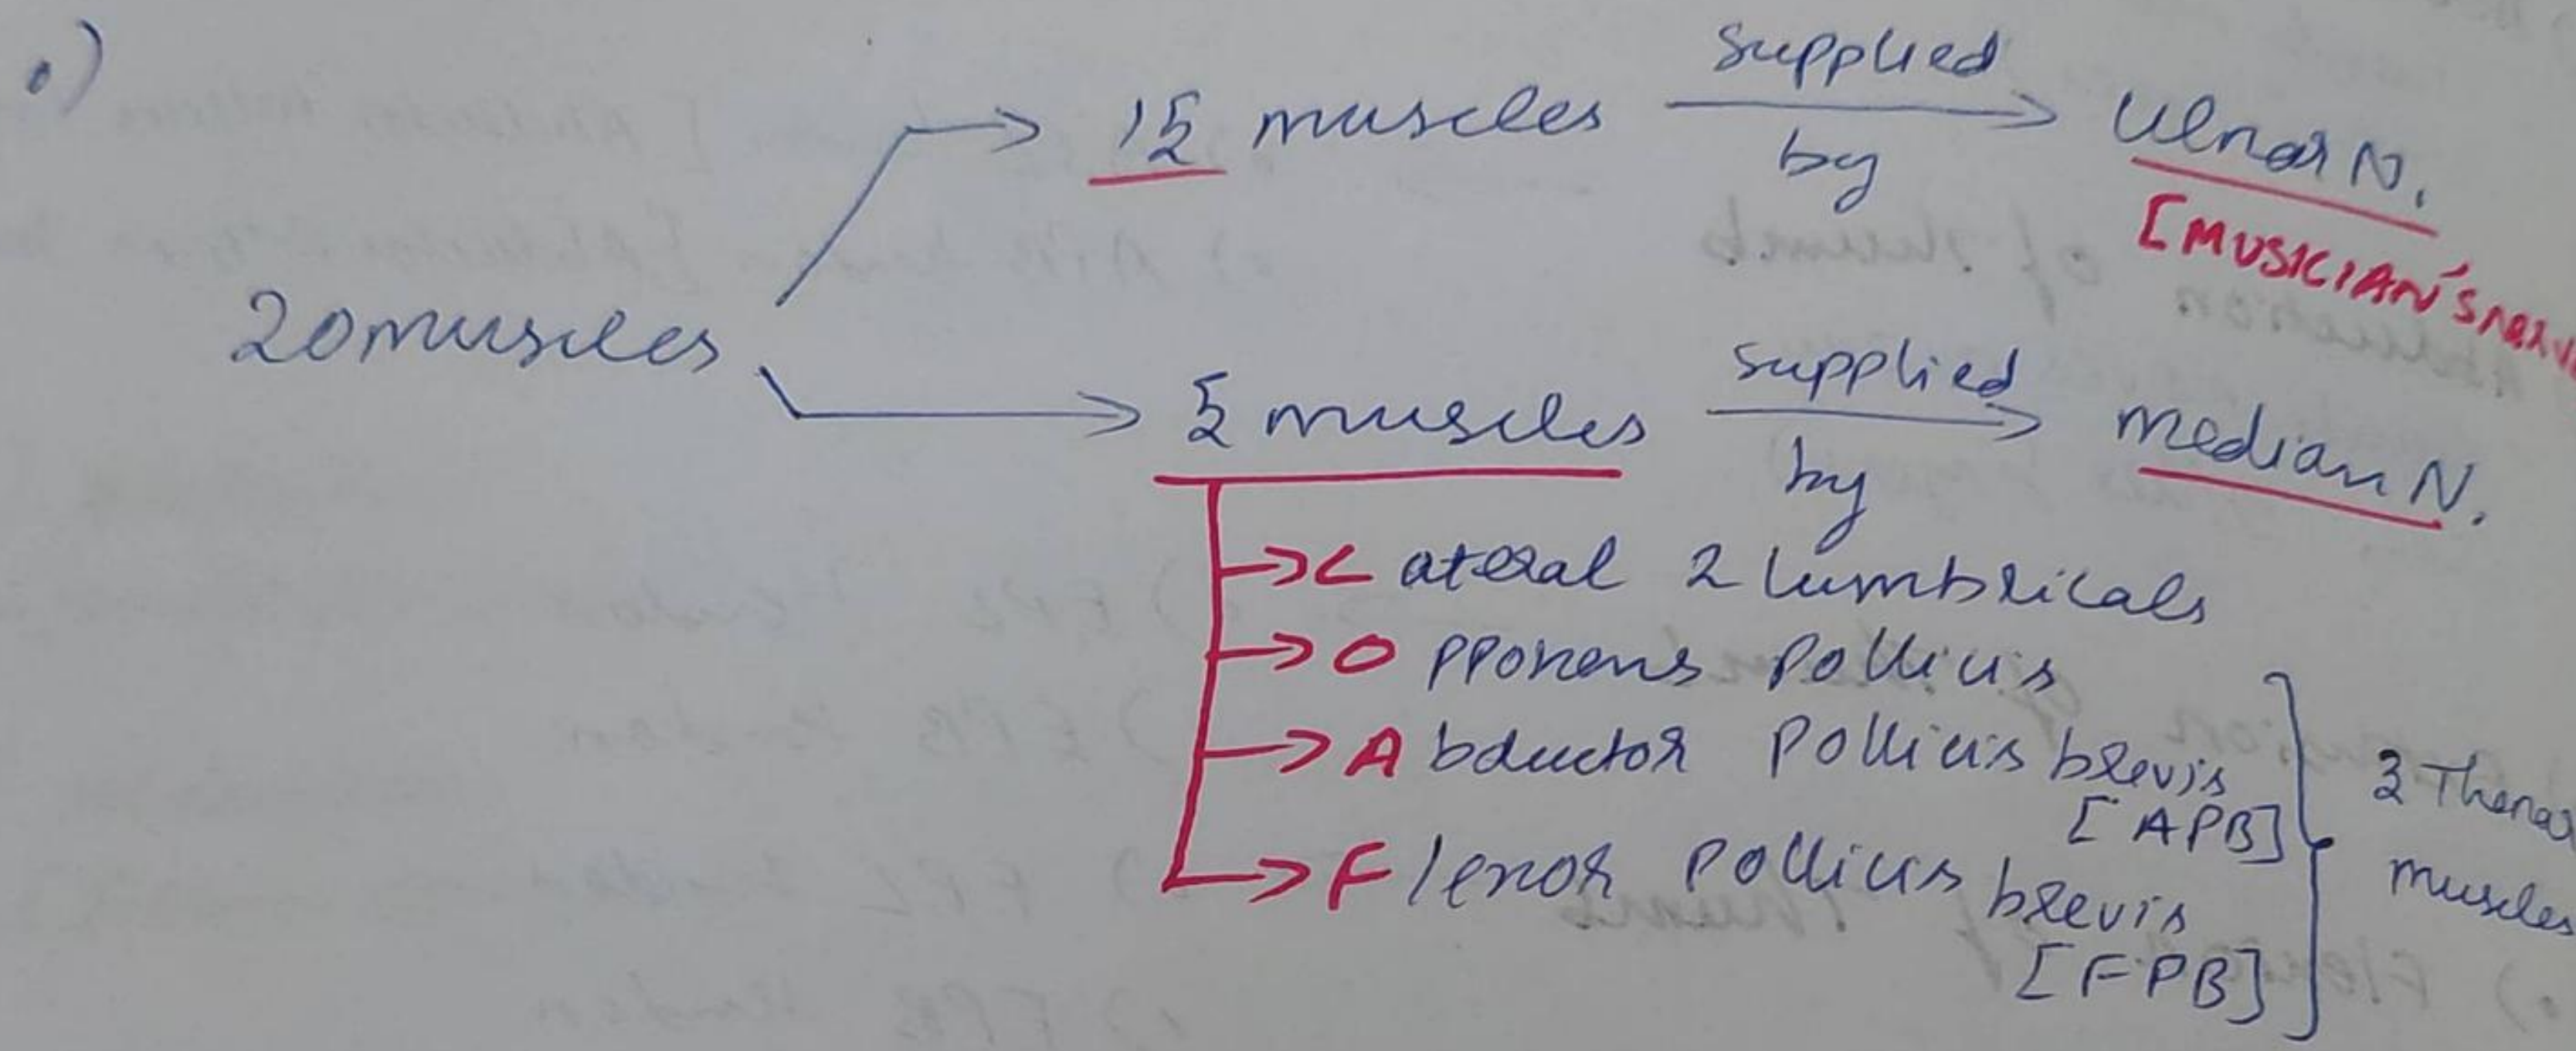 20 muscles
15 muscles supplied by Ulnar N.
[MUSICIAN'S
5 muscles supplied by median N.
Lateral 2 lumbricals
Opponens pollicis
Abductor pollicis brevis
[APB]
Flexor pollicis brevis
[FPB]
3 Thenar
muscles